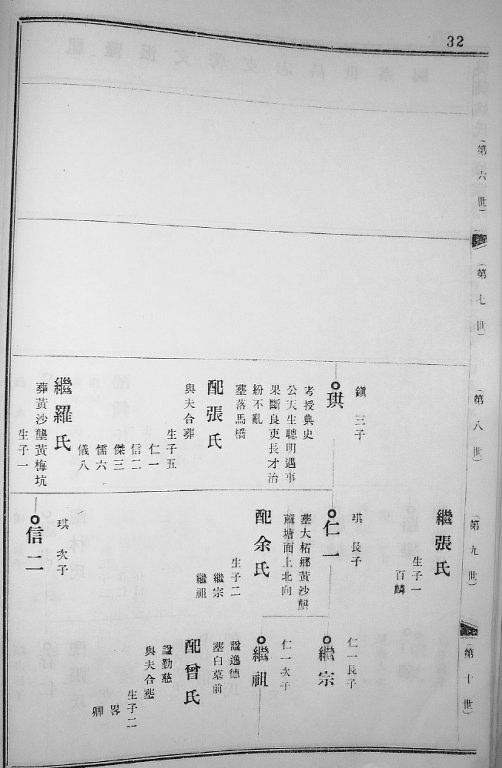 32
（第六世）
（第七世）
（第八世）
（第九世）
（第十世）
鎭 三子
琪
考授典史
公天生聰明遇事
果斷良吏長才治
紛不亂
塟落馬橋
配張氏
與夫合葬
生子五
仁一
信二
傑三
儒六
儀八
繼羅氏
葬黃沙壟黃梅坑
生子一
繼張氏
生子一
百麟
琪 長子
仁一
塟大柘鄉黃沙壟
塘面上北向
配余氏
生子二
繼宗
繼祖
琪 次子
信二
仁一長子
繼宗
仁一次子
繼祖
諡逸德
塟白墓前
配曾氏
諡勤慈
與夫合塟
生子二
畧
卿